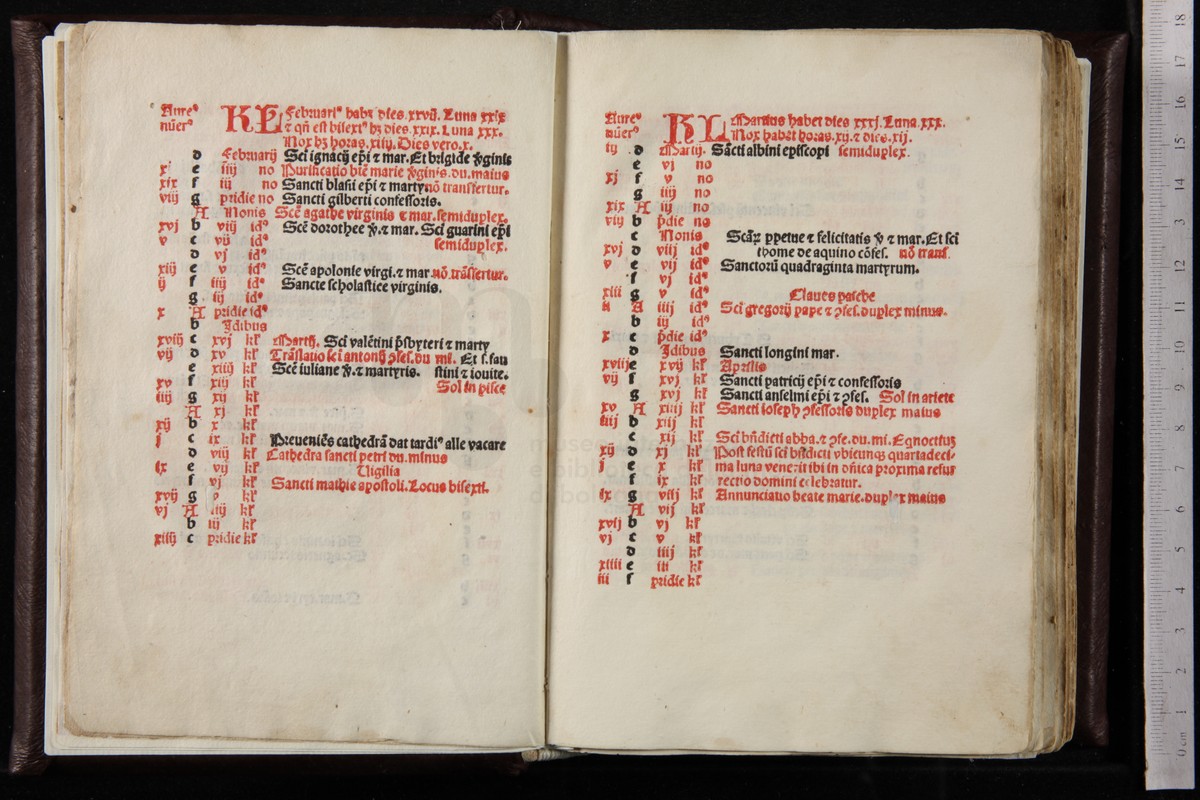 Aureꝰ KL Februariꝰ habꝫ dies.xxviij. Luna xxix
nũerꝰ ⁊ qñ est bisextꝰ hꝫ dies.xxix. Luna xxx.
Nox hꝫ horas.xiiij. Dies vero.x.
d Februarij Sc̃i ignacij ep̃i ⁊ mar. Et brigide v̾ginis
x e iiij no Purificatio bt̃e marie v̾ginis.du.maius
xix f iij no Sancti blasii ep̃i ⁊ marty. nõ transfertur.
viij g pridie no Sancti gilberti confessoris.
A Nonis Sc̃e agathe virginis ⁊ mar.semiduplex.
xvj b viij idꝰ Sc̃e dorothee v̾.⁊ mar. Sc̃i guarini ep̃i
v c vij idꝰ semiduplex.
d vj idꝰ
xiij e v idꝰ Sc̃e apolonie virgi.⁊ mar nõ.trãsfertur.
ij f iiij idꝰ Sancte scholastice virginis.
g iij idꝰ
x A pridie idꝰ
b Idibus
xviij c xvj kl̃ Martij. Sc̃i valẽtini p̃sbyteri ⁊ marty
vij d xv kl̃ Trãslatio sc̃i antonij ꝯfes.du mi. Et s.fau
e xiiij kl̃ Sc̃e iuliane v̾.⁊ martyris. stini ⁊ iouite.
xv f xiij kl̃ Sol in pisce
iiij g xij kl̃
A xj kl̃
xij b x kl̃
j c ix kl̃ Preueniẽs cathedrã dat tardiꝰ alle vacare
d viij kl̃ Cathedra sancti petri du.minus
ix e vij kl̃ Vigilia
f vj kl̃ Sancti mathie apostoli. Locus bisexti.
xvij g v kl̃
vj A iiij kl̃
b iij kl̃
xiiij c pridie kl̃
Aureꝰ KL Martius habet dies xxxj. Luna.xxx.
nũerꝰ Nox habet horas.xij.⁊ dies.xij.
iij d Martij. Sãcti albini episcopi semiduplex.
e vj no
xj f v no
g iiij no
xix A iij no
viij b p̃die no
c Nonis Scãꝝ ꝑpetue ⁊ felicitatis v̾ ⁊ mar. Et sc̃i
xvj d viij idꝰ thome de aquino cõfes. nõ trans.
v e vij idꝰ Sanctorũ quadraginta martyrum.
f vj idꝰ
xiii g v idꝰ Claues pasche
ii A iiij idꝰ Sc̃i gregorij pape ⁊ ꝯfes.duplex minus.
b iij idꝰ
x c p̃die idꝰ
d Idibus Sancti longini mar.
xviij e xvij kl̃ Aprilis
vij f xvj kl̃ Sancti patricij ep̃i ⁊ confessoris
g xvj kl̃ Sancti anselmi ep̃i ⁊ ꝯfes. Sol in ariete
xv A xiiij kl̃ Sancti ioseph ꝯfessoris duplex maius
iiij b xiij kl̃
c xij kl̃ Sc̃i bñdicti abba.⁊ ꝯfe.du.mi. Eqnoctiuꝫ
xij d xj kl̃ Post festũ sc̃i bñdicti vbicunqꝫ quartadeci-
j e x kl̃ ma luna venerit ibi in dñica proxima resur
f ix kl̃ rectio domini celebratur.
ix g viij kl̃ Annunciatio beate marie.duplex maius
A vij kl̃
xvij b vj kl̃
vj c v kl̃
d iiij kl̃
xiiii e iii kl̃
iii f pridie kl̃